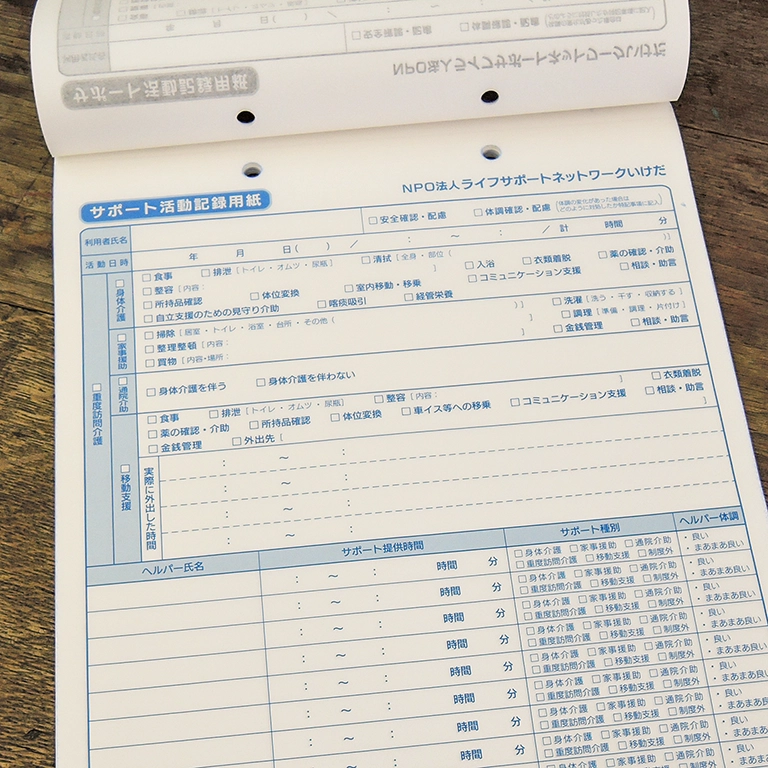 NPO法人ライフサポートネットワークいけだ
サポート活動記録用紙
利用者氏名
□安全確認・配慮 □体調確認・配慮 (体調の変化があった場合は
どのように対処したか特記事項に記入)
活動日時 年 月 日( ) ／ ： 〜 ： ／ 計 時間 分
□重度訪問介護
□身体介護
□食事 □排泄[トイレ・オムツ・尿瓶] □清拭[全身・部位( )]
□整容[内容： ] □入浴 □衣類着脱 □薬の確認・介助
□所持品確認 □体位変換 □室内移動・移乗 □コミュニケーション支援 □相談・助言
□自立支援のための見守り介助 □喀痰吸引 □経管栄養
□家事援助
□掃除[居室・トイレ・浴室・台所・その他( )] □洗濯[洗う・干す・収納する]
□整理整頓[内容： ] □調理[準備・調理・片付け]
□買物[内容・場所： ] □金銭管理 □相談・助言
□通院介助
□身体介護を伴う □身体介護を伴わない
□移動支援
□食事 □排泄[トイレ・オムツ・尿瓶] □整容[内容： ] □衣類着脱
□薬の確認・介助 □所持品確認 □体位変換 □車イス等への移乗 □コミュニケーション支援 □相談・助言
□金銭管理 □外出先[ ]
実際に外出した時間
： 〜 ：
： 〜 ：
： 〜 ：
： 〜 ：
ヘルパー氏名 サポート提供時間 サポート種別 ヘルパー体調
： 〜 ： 時間 分 □身体介護 □家事援助 □通院介助 ・良い
□重度訪問介護 □移動支援 □制度外 ・まあまあ良い
： 〜 ： 時間 分 □身体介護 □家事援助 □通院介助 ・良い
□重度訪問介護 □移動支援 □制度外 ・まあまあ良い
： 〜 ： 時間 分 □身体介護 □家事援助 □通院介助 ・良い
□重度訪問介護 □移動支援 □制度外 ・まあまあ良い
： 〜 ： 時間 分 □身体介護 □家事援助 □通院介助 ・良い
□重度訪問介護 □移動支援 □制度外 ・まあまあ良い
： 〜 ： 時間 分 □身体介護 □家事援助 □通院介助 ・良い
□重度訪問介護 □移動支援 □制度外 ・まあまあ良い
： 〜 ： 時間 分 □身体介護 □家事援助 □通院介助 ・良い
□重度訪問介護 □移動支援 □制度外 ・まあまあ良い
： 〜 ： 時間 分 □身体介護 □家事援助 □通院介助 ・良い
□重度訪問介護 □移動支援 □制度外 ・まあまあ良い
： 〜 ： 時間 分 □身体介護 □家事援助 □通院介助 ・良い